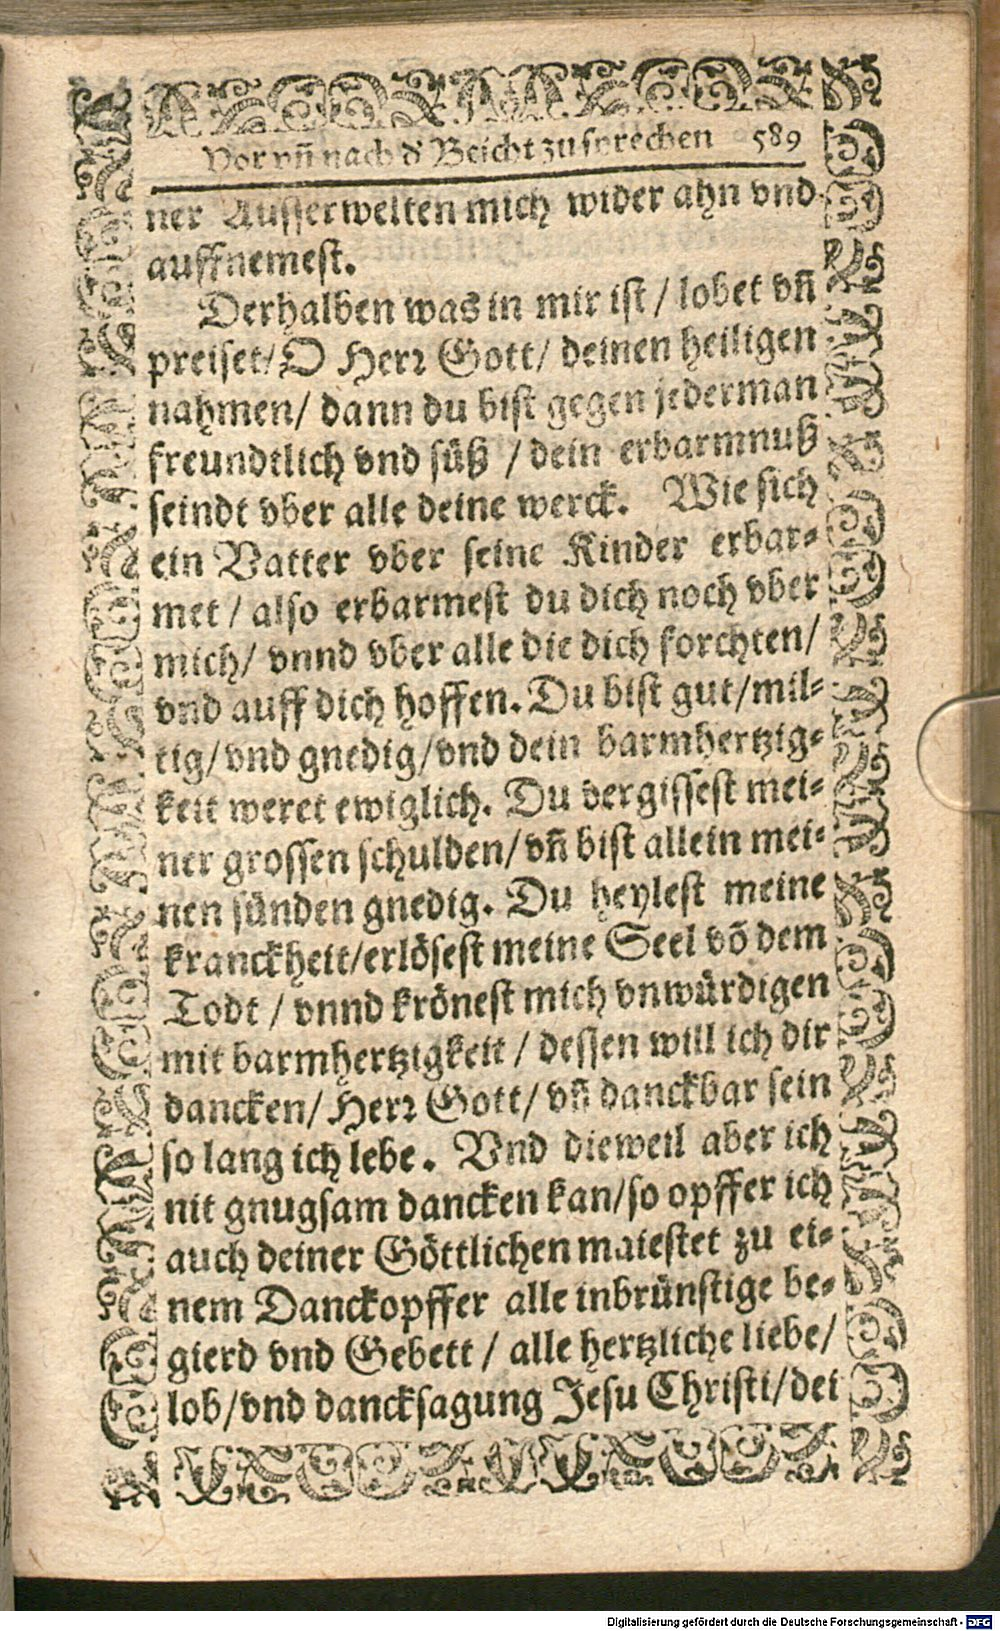 Vor vñ nach d' Beicht zu sprechen 589
ner Ausserwelten mich wider ahn vnd
auffnemest.
Derhalben was in mir ist / lobet vñ
preiset / O Herr Gott / deinen heiligen
nahmen / dann du bist gegen jederman
freundtlich vnd süß / dein erbarmnuß
seindt vber alle deine werck. Wie sich
ein Vatter vber seine Kinder erbar-
met / also erbarmest du dich noch vber
mich / vnnd vber alle die dich forchten /
vnd auff dich hoffen. Du bist gut / mil-
tig / vnd gnedig / vnd dein barmhertzig-
keit weret ewiglich. Du vergissest mei-
ner grossen schulden / vñ bist allein mei-
nen sünden gnedig. Du heylest meine
kranckheit / erlösest meine Seel võ dem
Todt / vnnd krönest mich vnwürdigen
mit barmhertzigkeit / dessen will ich dir
dancken / Herr Gott / vñ danckbar sein
so lang ich lebe. Vnd dieweil aber ich
nit gnugsam dancken kan / so opffer ich
auch deiner Göttlichen maiestet zu ei-
nem Danckopffer alle inbrünstige be-
gierd vnd Gebett / alle hertzliche liebe /
lob / vnd dancksagung Jesu Christi / dei
Digitalisierung gefördert durch die Deutsche Forschungsgemeinschaft - DFG